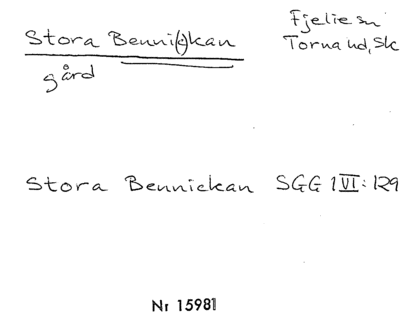 Stora Benni(c)kan
gård
Fjelie sn
Torna hd, Sk
Stora Bennickan SGG 1 VI: 129
Nr 15981